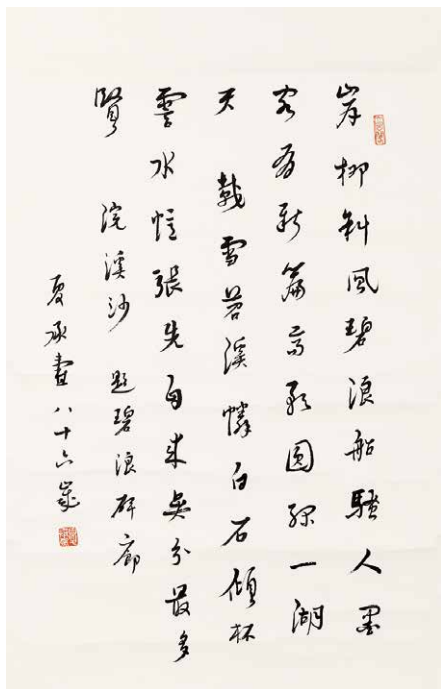 岸柳斜風碧浪船騷人墨
客有新篇高歌圓綠一湖
天 載雪苕溪憐白石傾杯
雲水憶張先自來吳分最多
賢 浣溪沙 題碧浪碑廊
夏承燾八十六歲